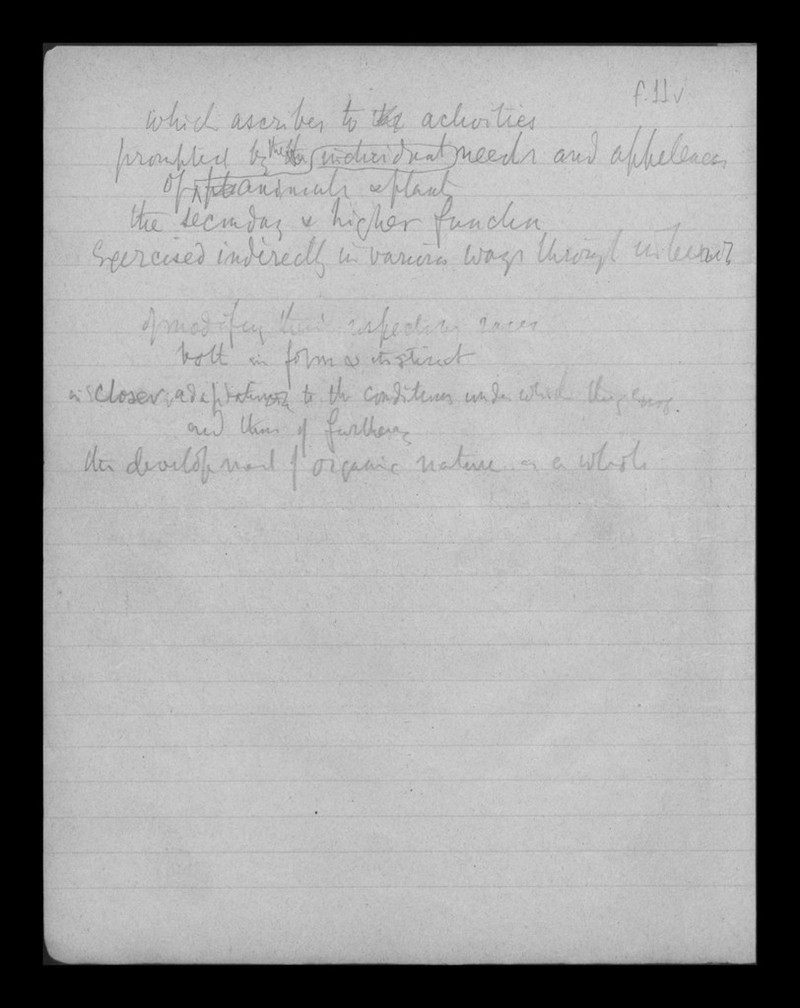 f.11v
which ascribes to the activities
prompted by the individual needs and appetences
of animals & plant
the secondary & higher function
Exercised indirectly in various ways through
of modifying their respective races
both in form & instinct
in closer adaptation to the conditions under which they
and thus of furthering
the development of organic nature as a whole